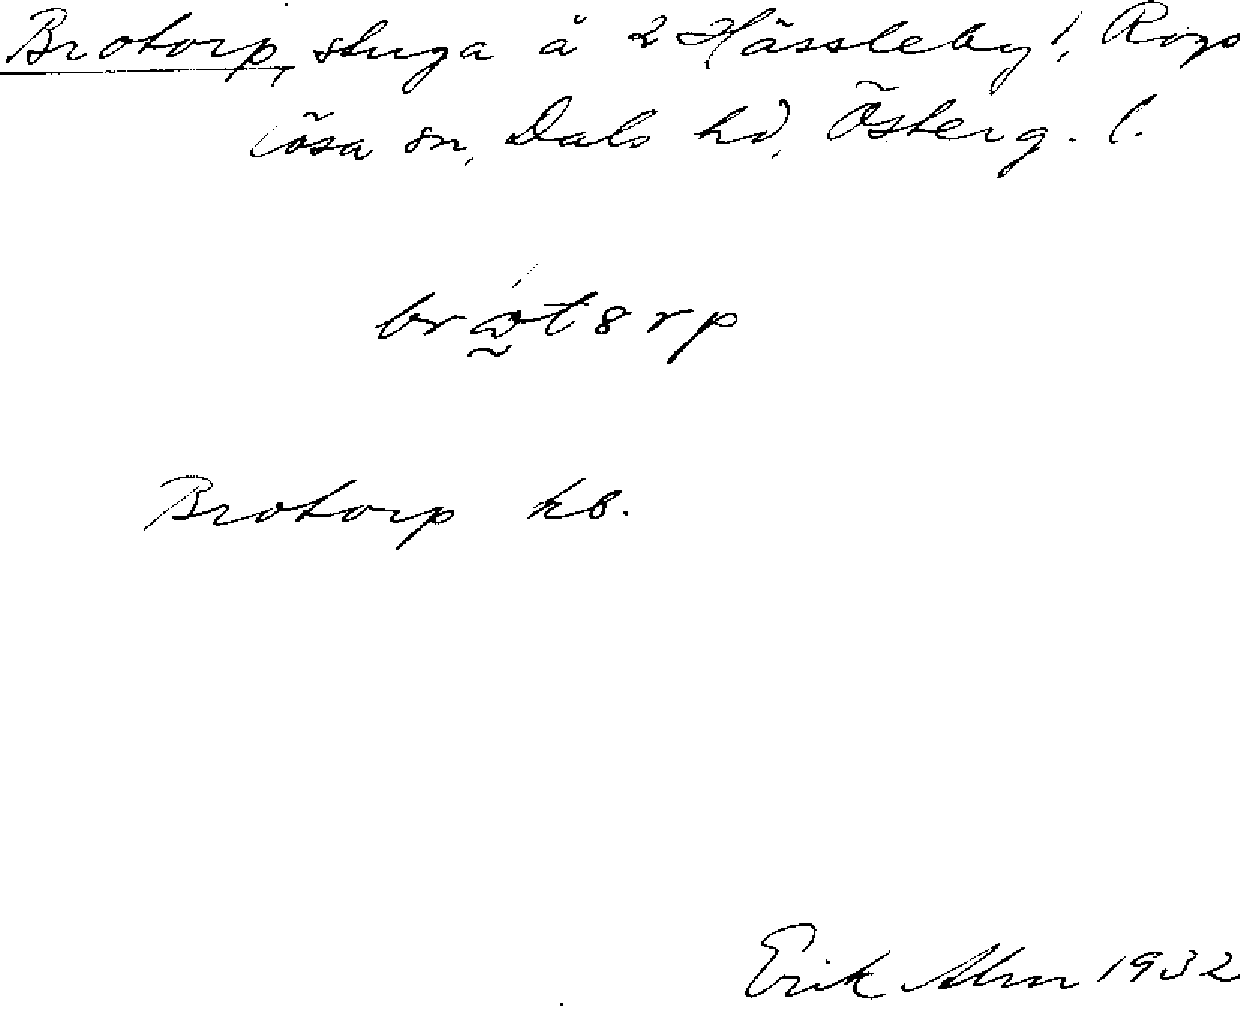 Brotorp, stuga å 2 Hässleby!, Rogs
lösa sn, Dals hd, Österg. l.
Brotorp kb.
Erik Alm 1932